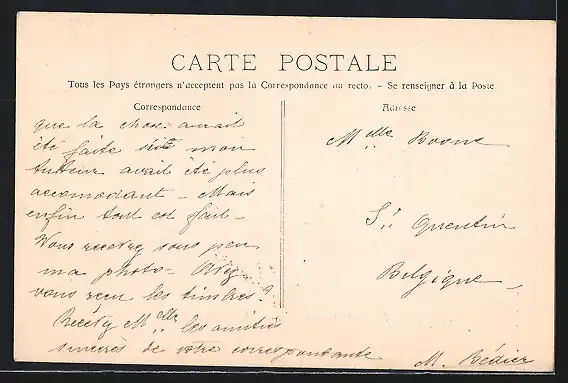 CARTE POSTALE
Tous les Pays étrangers n'acceptent pas la Correspondance au recto. - Se renseigner à la Poste
Correspondance
que la chose aurait
été faite si mon
tuteur avait été plus
accomodant - Mais
enfin tout est fait -
Vous recevrez sous peu
ma photo - Avez
vous reçu les timbres?
Recevez Melle les amitiés
sincères de votre correspondante
M. Bédier
Adresse
Melle Boone
St Quentin
Belgique